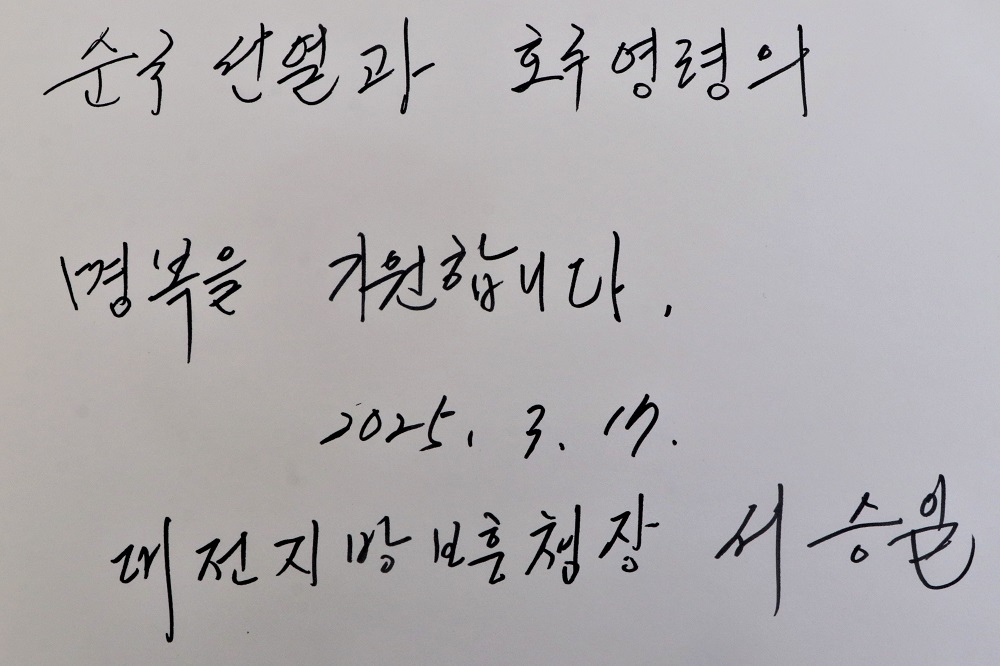 순국 선열과 호국영령의
명복을 기원합니다.
2025. 3. 17.
대전지방보훈청장 서승일